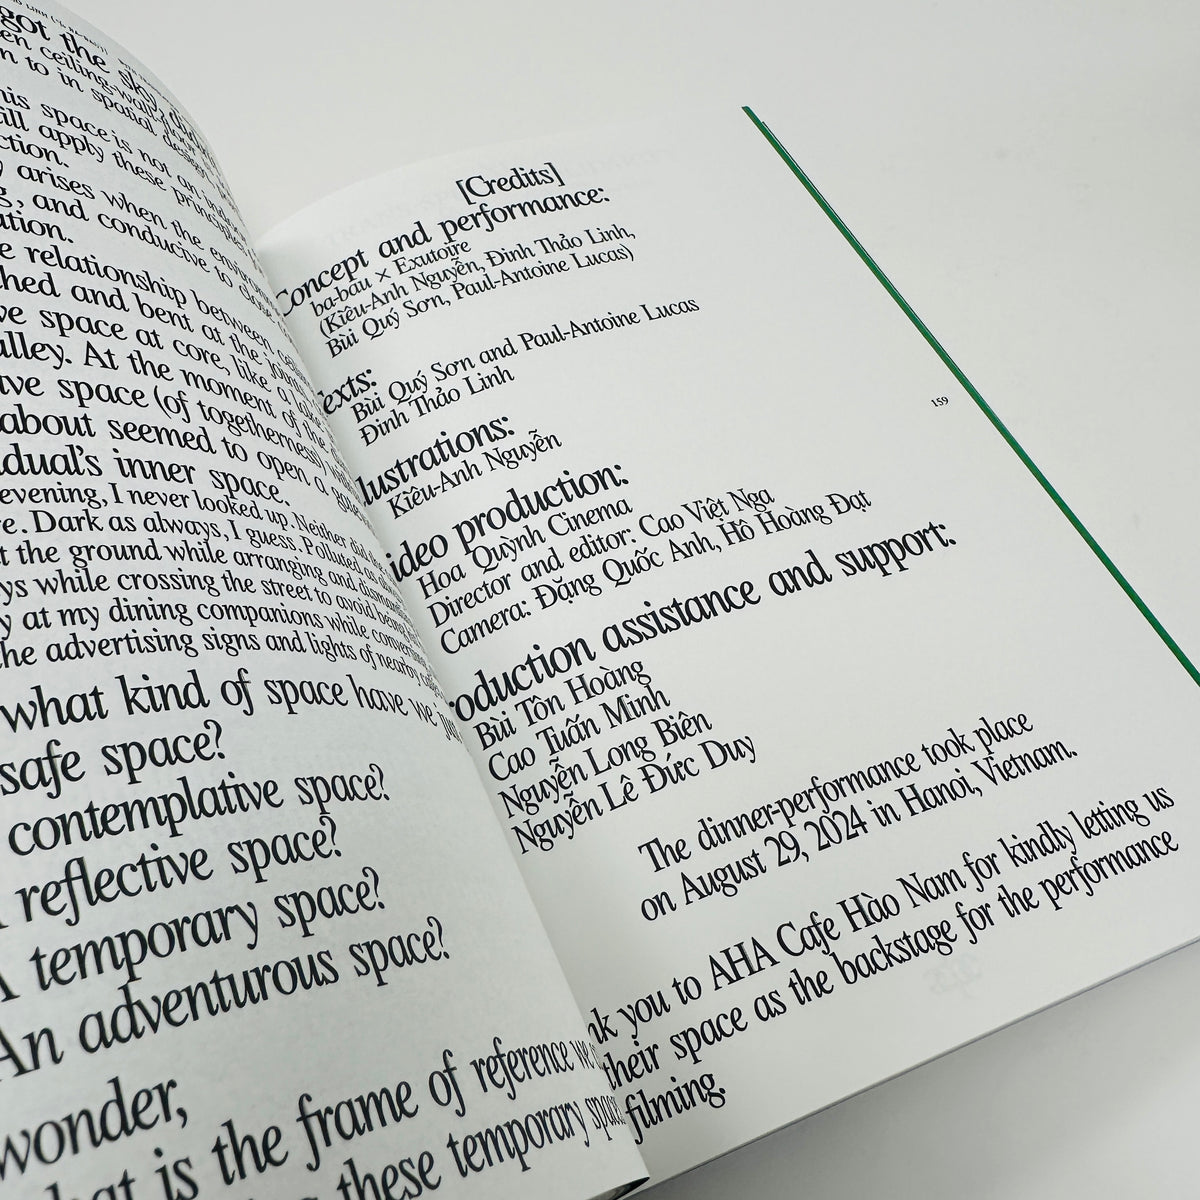 got the sky, did
en ceiling-wall-floor
n to in spatial design
his space is not an indoor
ill apply these principles
ction.
arises when the environ
g, and conducive to close
ation.
e relationship between
hed and bent at the joint
ve space at core, like a lake
alley. At the moment of the
ve space (of togetherness)
about seemed to open a
dual's inner space.
evening, I never looked up. Neither did
re. Dark as always, I guess. Polluted as
t the ground while arranging and
ys while crossing the street to avoid being
y at my dining companions while
he advertising signs and lights of nearby
what kind of space have we
safe space?
contemplative space?
reflective space?
A temporary space?
An adventurous space?
wonder,
hat is the frame of reference we
these temporary space
[Credits]
Concept and performance:
ba-bau × Exutoire
(Kiều-Anh Nguyễn, Đinh Thảo Linh,
Bùi Quý Sơn, Paul-Antoine Lucas)
exts:
Bùi Quý Sơn and Paul-Antoine Lucas
Đinh Thảo Linh
lustrations:
Kiều-Anh Nguyễn
ideo production:
Hoa Quỳnh Cinema
Director and editor: Cao Việt Nga
Camera: Đặng Quốc Anh, Hồ Hoàng Đạt
oduction assistance and support:
Bùi Tôn Hoàng
Cao Tuấn Minh
Nguyễn Long Biên
Nguyễn Lê Đức Duy
The dinner-performance took place
on August 29, 2024 in Hanoi, Vietnam.
nk you to AHA Cafe Hào Nam for kindly letting us
their space as the backstage for the performance
filming.
159